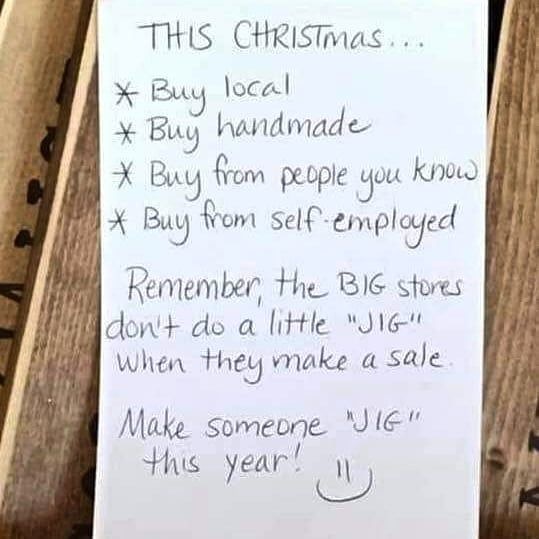 THIS CHRISTmas...
* Buy local
* Buy handmade
* Buy from people you know
* Buy from self-employed
Remember, the BIG stores
don't do a little "JIG"
when they make a sale.
Make someone "JIG"
this year!